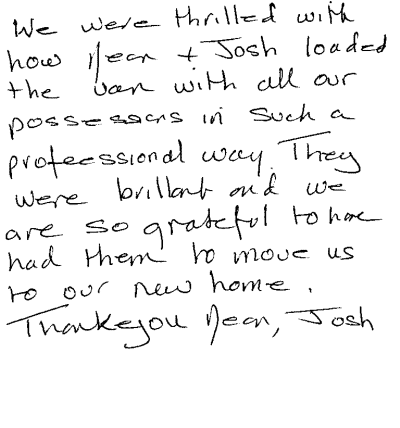 We were thrilled with
how Dean + Josh loaded
the van with all our
possessons in such a
professional way. They
were brillant and we
are so grateful to have
had them to move us
to our new home.
Thankyou Dean, Josh